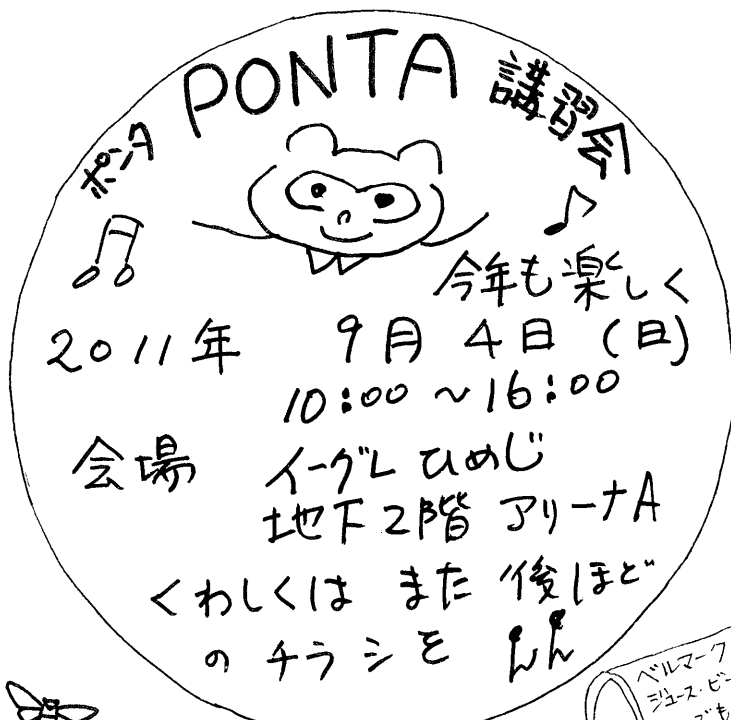 ポンタ PONTA 講習会
今年も楽しく
2011年 9月 4日 (日)
10:00 ～ 16:00
会場 イーグレ ひめじ
地下2階 アリーナA
くわしくは また 後ほど
の チラシを
ベルマーク
ジュース・ビー
でも